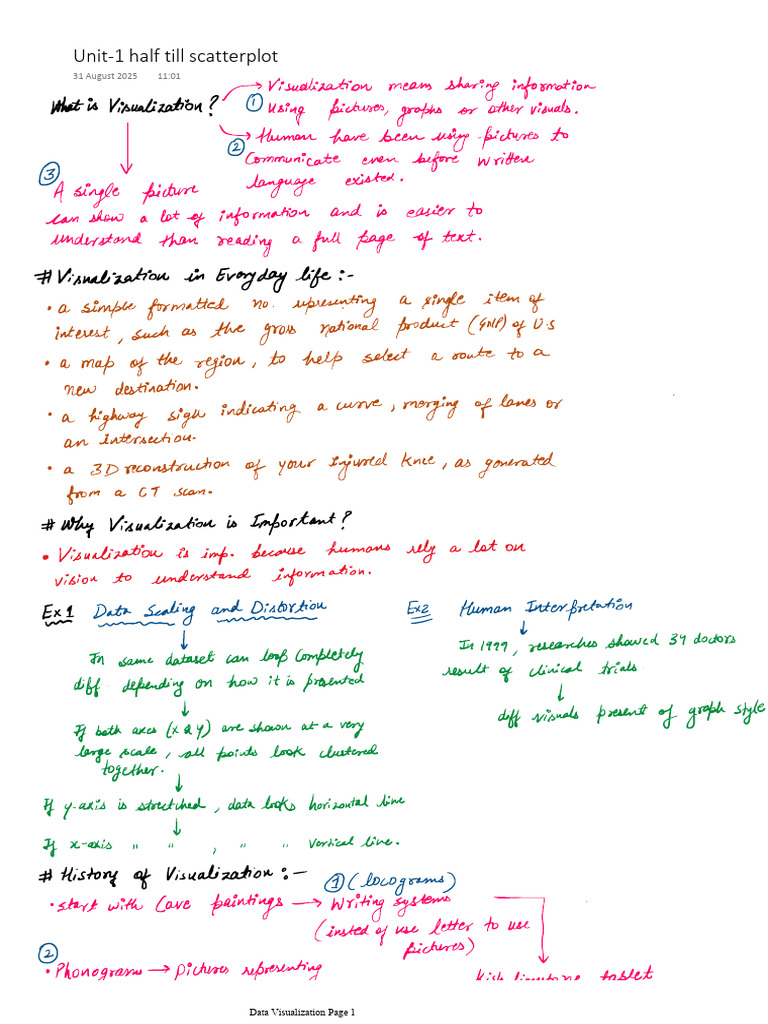 Unit-1 half till scatterplot
31 August 2025 11:01
What is Visualization?
① → Visualization means sharing information
Using pictures, graphs or other visuals.
② → Human have been using pictures to
Communicate even before written
language existed.
③
A single picture
can show a lot of information and is easier to
understand than reading a full page of text.
# Visualization in Everyday life :-
• a simple formatted no. representing a single item of
interest, such as the gross national product (GNP) of U.S
• a map of the region, to help select a route to a
new destination.
• a highway sign indicating a curve, merging of lanes or
an intersection.
• a 3D reconstruction of your Injured Knee, as generated
from a CT scan.
# Why Visualization is Important?
• Visualization is imp. because humans rely a lot on
vision to understand information.
Ex 1 Data Scaling and Distortion
↓
In same dataset can look completely
diff depending on how it is presented
↓
If both axes (x & y) are shown at a very
large scale, all points look clustered
together.
↓
If y-axis is stretched, data looks horizontal line
↓
If x-axis " " , " " vertical line.
Ex2 Human Interpretation
↓
In 1999, researches showed 34 doctors
result of clinical trials
↓
diff visuals present of graph style
# History of Visualization :-
• start with Cave paintings → Writing systems
① (locograms)
(insted of use letter to use
pictures)
②
• Phonograms → Pictures representing
Kish limestone tablet
Data Visualization Page 1